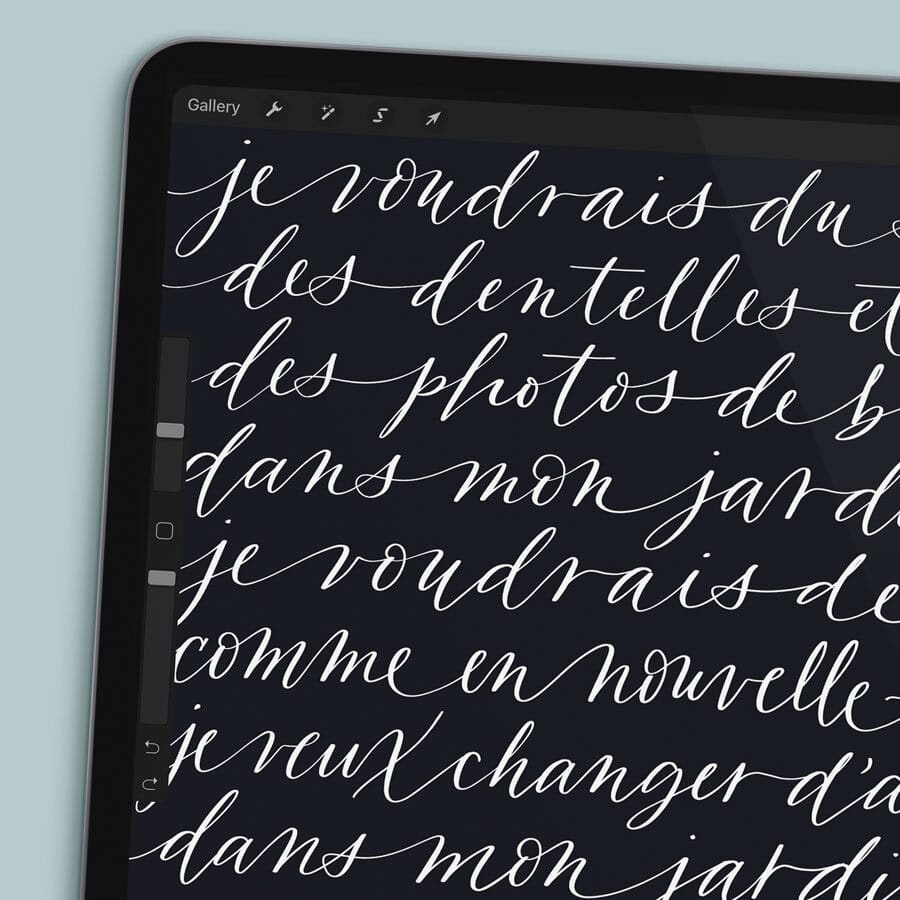 Gallery
je voudrais du
des dentelles et
des photos de b
dans mon jard
je voudrais de
comme en nouvelle-
je veux changer d'a
dans mon jardi